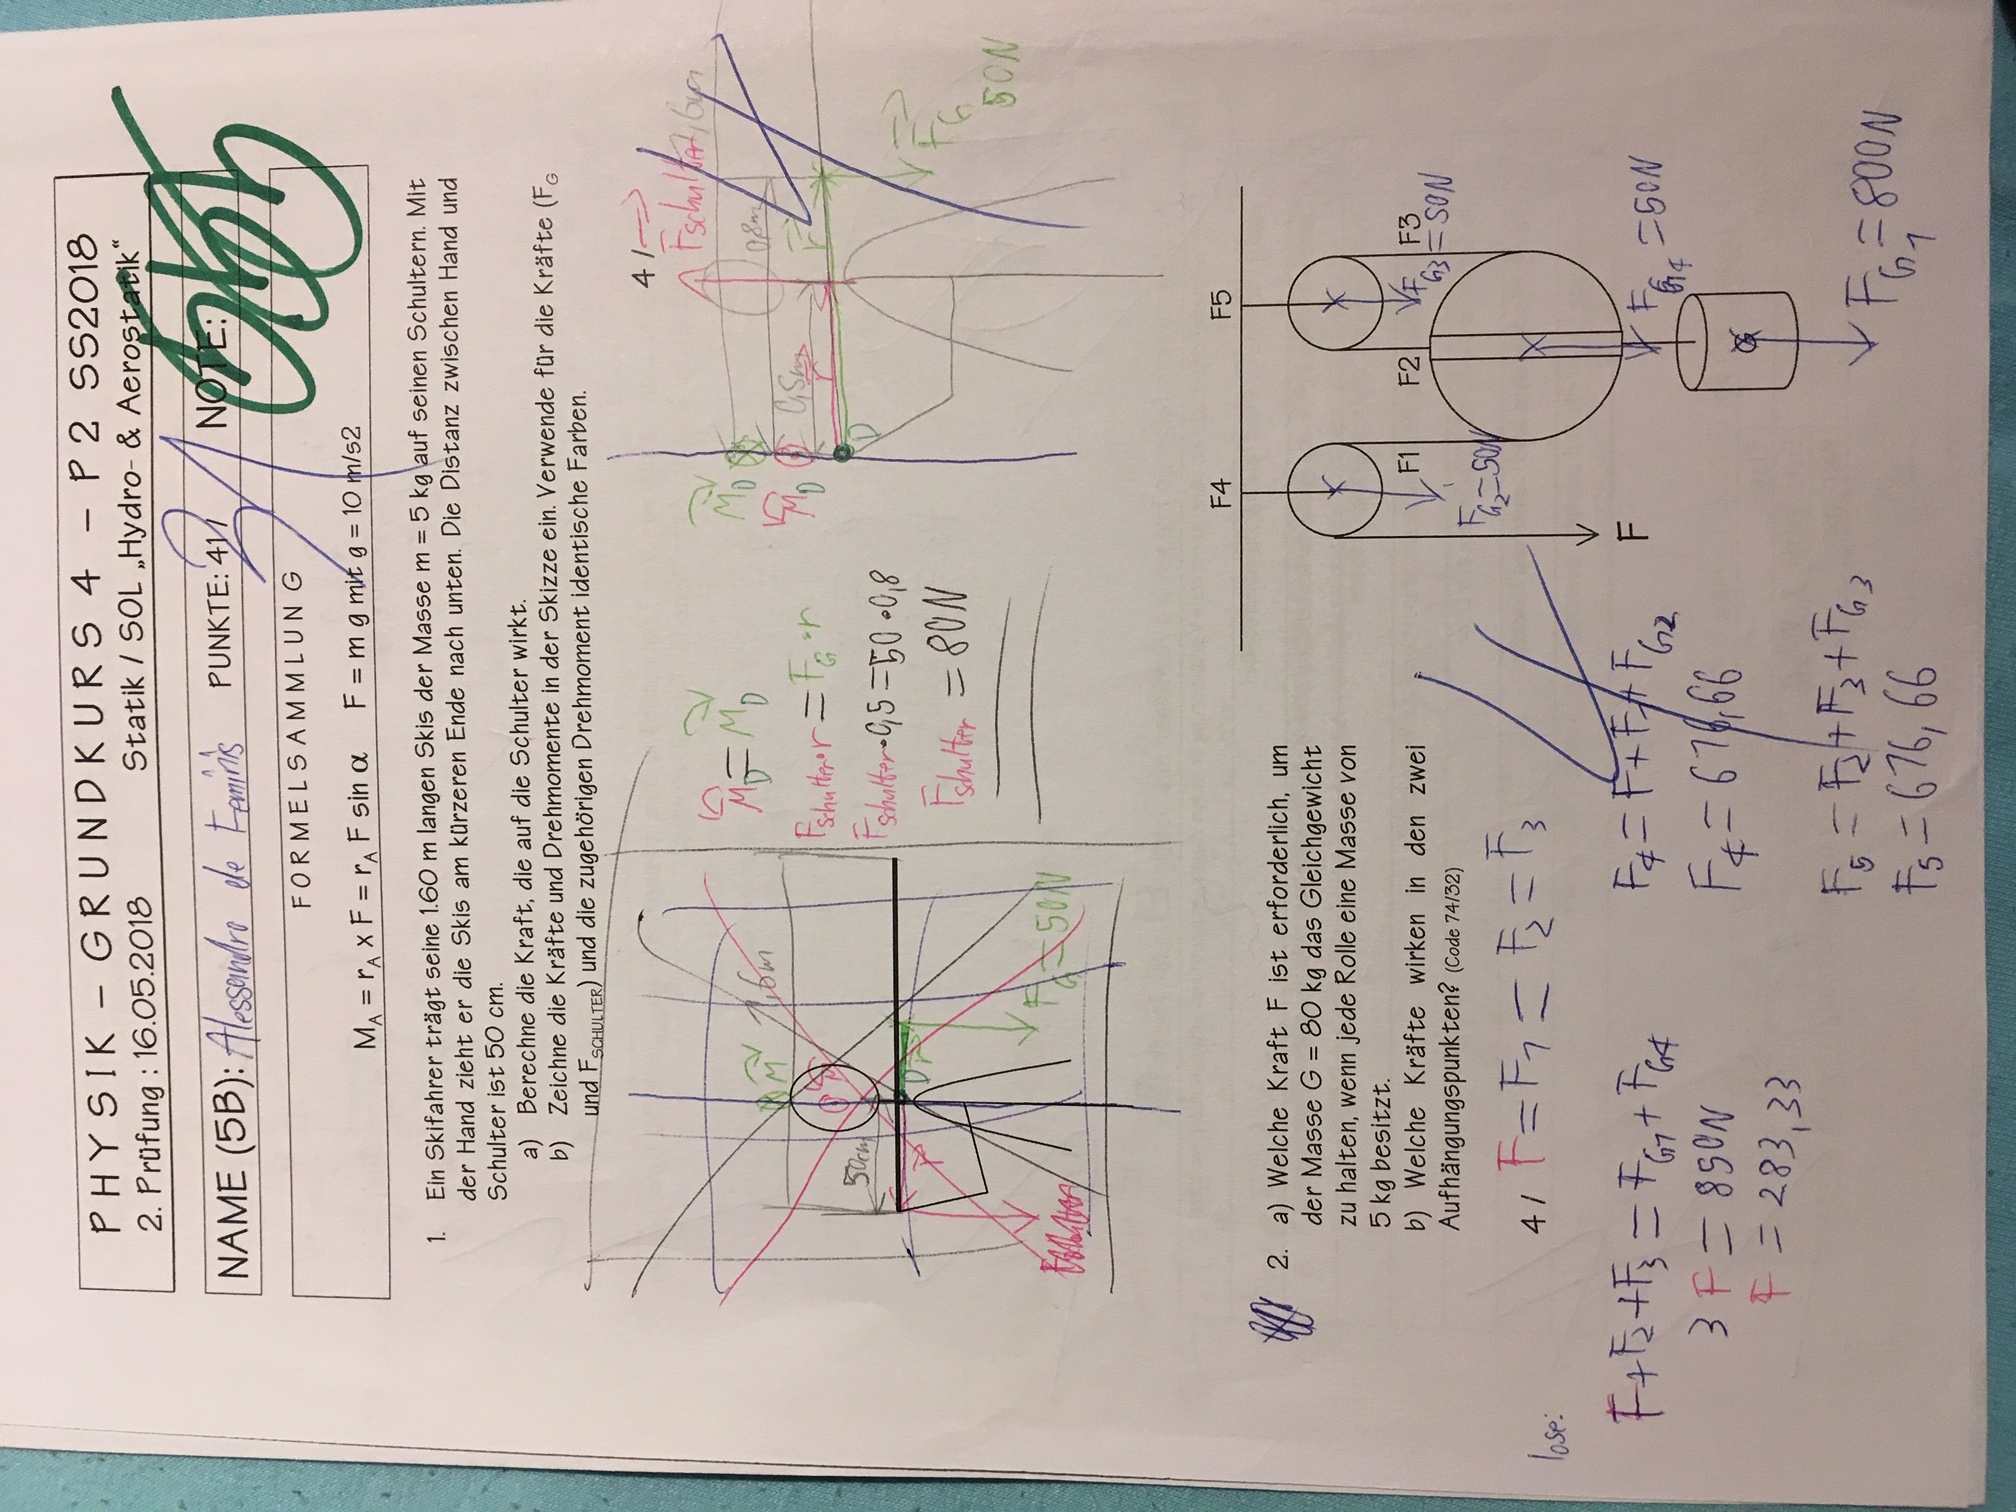 PHYSIK – GRUNDKURS 4 – P2 SS2018
2. Prüfung : 16.05.2018 Statik / SOL „Hydro- & Aerostatik“
NAME (5B): Alessandro de PUNKTE: 41 / NOTE:
FORMELSAMMLUNG
M_A = r_A x F = r_A F sin α F = m g mit g = 10 m/s2
1. Ein Skifahrer trägt seine 1.60 m langen Skis der Masse m = 5 kg auf seinen Schultern. Mit
der Hand zieht er die Skis am kürzeren Ende nach unten. Die Distanz zwischen Hand und
Schulter ist 50 cm.
a) Berechne die Kraft, die auf die Schulter wirkt.
b) Zeichne die Kräfte und Drehmomente in der Skizze ein. Verwende für die Kräfte (F_G
und F_SCHULTER) und die zugehörigen Drehmoment identische Farben.
4 /
F schulter
M_D = M_D
M_D
M_D
M
1,6m
0,8m
0,5m
r
r
D
F schulter · r = F_G · r
50cm
F schulter · 0,5 = 50 · 0,8
F schulter = 80N
r
D
r
F_G = 50N
F_G
50N
F4 F5
2. a) Welche Kraft F ist erforderlich, um
der Masse G = 80 kg das Gleichgewicht
zu halten, wenn jede Rolle eine Masse von
5 kg besitzt.
b) Welche Kräfte wirken in den zwei
Aufhängungspunkten? (Code 74/32)
F1 F2 F3
F_G3 = 50N
F_G2 = 50N
4 / F = F_1 = F_2 = F_3
lose:
F + F_2 + F_3 = F_G1 + F_G4
3 F = 850N
F = 283,33
F_4 = F + F_1 + F_G2
F_4 = 676,66
F_5 = F_2 + F_3 + F_G3
F_5 = 676,66
F
F_G4 = 50N
G
F_G1 = 800N